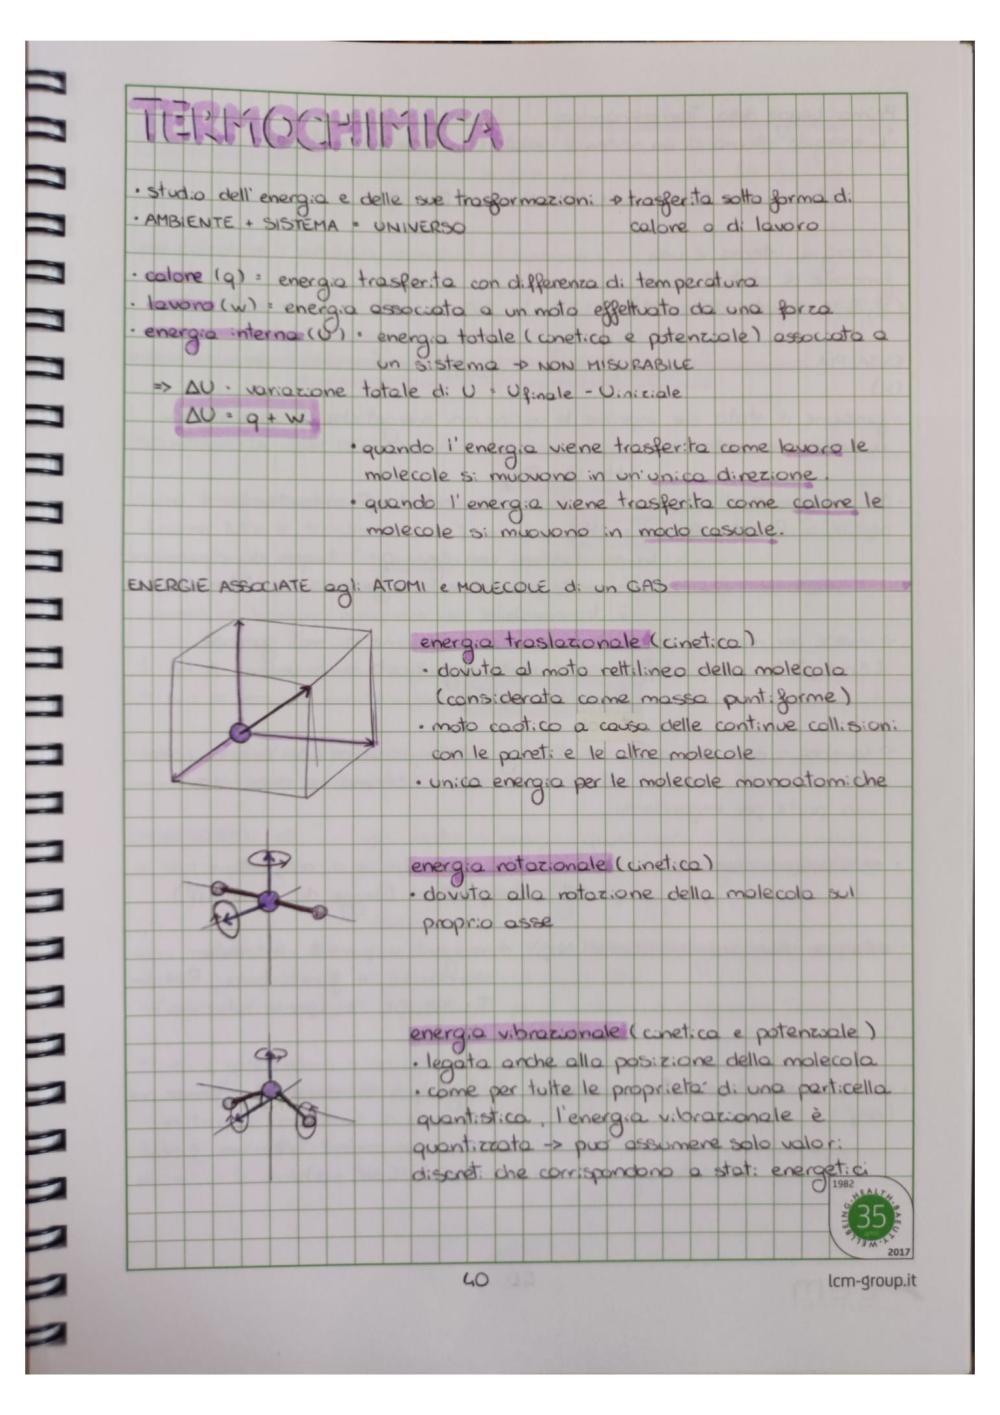 TERMOCHIMICA
• studio dell'energia e delle sue trasformazioni → trasferita sotto forma di
• AMBIENTE + SISTEMA = UNIVERSO calore o di lavoro
• calore (q) = energia trasferita con differenza di temperatura
• lavoro (w) = energia associata a un moto effettuato da una forza
• energia interna (U) = energia totale (cinetica e potenziale) associata a
un sistema → NON MISURABILE
=> ΔU = variazione totale di U = Ufinale - Uiniziale
ΔU = q + w
• quando l'energia viene trasferita come lavoro le
molecole si muovono in un'unica direzione.
• quando l'energia viene trasferita come calore le
molecole si muovono in modo casuale.
ENERGIE ASSOCIATE agli ATOMI e MOLECOLE di un GAS
energia traslazionale (cinetica)
• dovuta al moto rettilineo della molecola
(considerata come massa puntiforme)
• moto caotico a causa delle continue collisioni
con le pareti e le altre molecole
• unica energia per le molecole monoatomiche
energia rotazionale (cinetica)
• dovuta alla rotazione della molecola sul
proprio asse
energia vibrazionale (cinetica e potenziale)
• legata anche alla posizione della molecola
• come per tutte le proprietà di una particella
quantistica, l'energia vibrazionale è
quantizzata -> può assumere solo valori
discreti che corrispondono a stati energetici
1982
HEALTH•BEAUTY•WELLBEING
35
2017
40
lcm-group.it